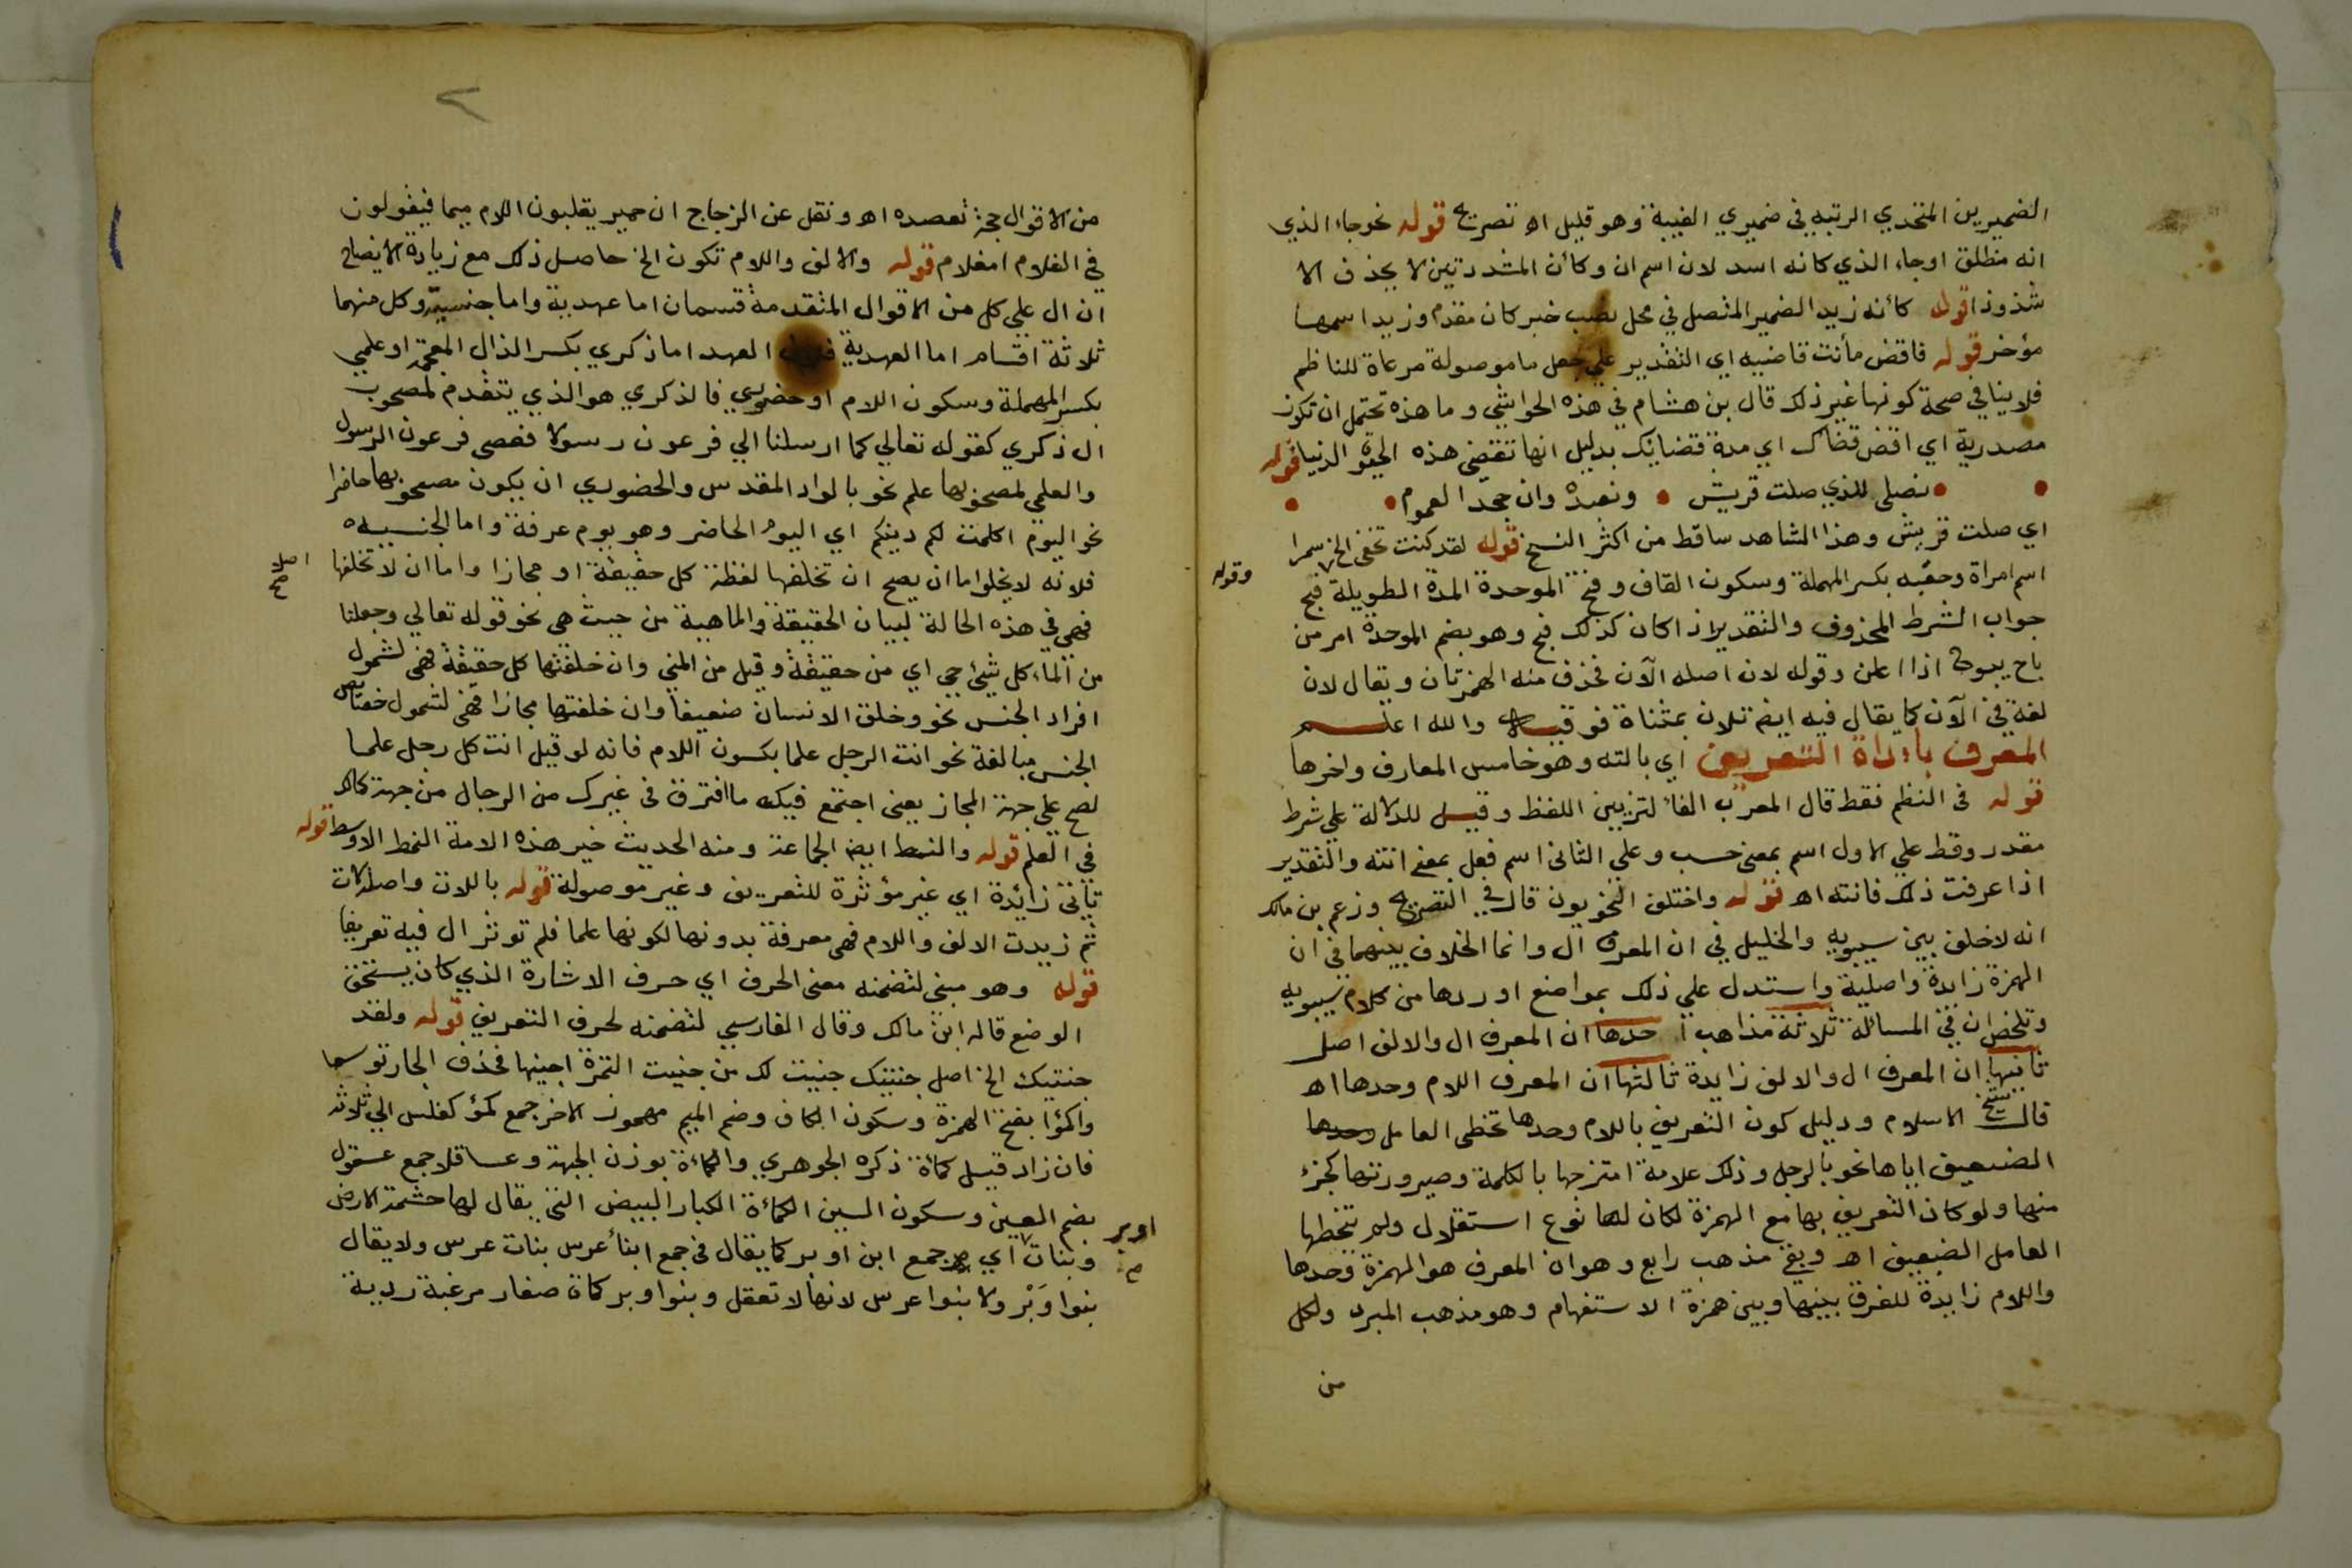 الضميرين المتحدي الرتبه في ضميري الغيبة وهو قليل اه تصريح قوله نحو جاء الذي
انه منطلق او جاء الذي كانه اسد لان اسم ان وكأن المشددتين لا يحذف الا
شذوذا قوله كأنه زيد الضمير المتصل في محل نصب خبر كان مقدم وزيد اسمها
مؤخر قوله فاقض مأنت قاضيه اي التقدير علي جعل ما موصولة مرعاة للناظم
فلا ينافي صحة كونها غير ذلك قال بن هشام في هذه الحواشي وما هذه تحتمل ان تكون
مصدرية اي اقض قضاك اي مدة قضايك بدليل انها تقضي هذه الحيوة الدنيا قوله
نصلى للذي صلت قريش ونعبده وان جحد العموم
اي صلت قريش وهذا الشاهد ساقط من اكثر النسخ قوله لقد كنت تخفى الخ سمرا
اسم امراة وحقبه بكسر المهملة وسكون القاف وفتح الموحدة المدة الطويلة فبح
وقوله
جواب الشرط المحذوف والتقدير اذا كان كذلك فبح وهو بضم الموحدة امر من
باح يبوح اذا اعلن وقوله لان اصله الآن فحذف منه الهمزتان ويقال لان
لغة في الآن كما يقال فيه ايضا تلان بمثناة فوقيه والله اعلم
المعرف بأداة التعريف اي بالته وهو خامس المعارف واخرها
قوله في النظم فقط قال المعرب الفاء لتزيين اللفظ وقيل للدلالة علي شرط
مقدر وقط علي الاول اسم بمعنى حسب وعلي الثاني اسم فعل بمعنى انته والتقدير
اذا عرفت ذلك فانته اه قوله واختلف النحويون قال في التصريح وزعم بن مالك
انه لا خلف بين سيبويه والخليل في ان المعرف ال وانما الخلاف بينهما في ان
الهمزة زايدة واصلية واستدل علي ذلك بمواضع اوردها من كلام سيبويه
وتلخص ان في المسائلة ثلاثة مذاهب احدها ان المعرف ال والالف اصل
ثانيها ان المعرف ال والالف زايدة ثالثها ان المعرف اللام وحدها اه
قال شيخ الاسلام ودليل كون التعريف باللام وحدها تخطى العامل وحدها
الضعيف اياها نحو بالرجل وذلك علامة امتزجها بالكلمة وصيرورتها كجزء
منها ولو كان التعريف بها مع الهمزة لكان لها نوع استقلال ولم يتخطها
العامل الضعيف اه وبقي مذهب رابع وهو ان المعرف هو الهمزة وحدها
واللام زايدة للفرق بينها وبين همزة الاستفهام وهو مذهب المبرد ولكل
من
من الاقوال حجة تعضده اه ونقل عن الزجاج ان حمير يقلبون اللام ميما فيقولون
في الغلام امغلام قوله والالف واللام تكون الخ حاصل ذلك مع زيادة الايضاح
ان ال علي كل من الاقوال المتقدمة قسمان اما عهدية واما جنسية وكل منهما
ثلاثة اقسام اما العهدية العهد اما ذكري بكسر الذال المعجمة او علمي
بكسر المهملة وسكون اللام او حضوري فالذكري هو الذي يتقدم لمصحوب
ال ذكري كقوله تعالي كما ارسلنا الي فرعون رسولا فعصى فرعون الرسول
والعلمي لمصحوبها علم نحو بالواد المقدس والحضوري ان يكون مصحوبها حاضرا
نحو اليوم اكملت لكم دينكم اي اليوم الحاضر وهو يوم عرفة واما الجنسيه
فلانه لا يخلوا اما ان يصح ان تخلفها لفظة كل حقيقة او مجازا واما ان لا تخلفها
اصلا صح
فهي في هذه الحالة لبيان الحقيقة والماهية من حيث هي نحو قوله تعالي وجعلنا
من الماء كل شيئ حي اي من حقيقة وقيل من المني وان خلفتها كل حقيقة فهي لشمول
افراد الجنس نحو وخلق الانسان ضعيفا وان خلفتها مجازا فهي لشمول خصائص
الجنس مبالغة نحو انت الرجل علما بكسون اللام فانه لو قيل انت كل رجل علما
لصح علي جهة المجاز يعنى اجتمع فيك ما افترق في غيرك من الرجال من جهة كمالك
في العلم قوله والنمط ايضا الجماعة ومنه الحديث خير هذه الامة النمط الاوسط قوله
تأتي زائدة اي غير مؤثرة للتعريف وغير موصولة قوله باللات واصله لات
ثم زيدت الالف واللام فهي معرفة بدونها لكونها علما فلم توثر ال فيه تعريفا
قوله وهو مبنى لتضمنه معنى الحرف اي حرف الاشارة الذي كان يستحق
الوضع قاله ابن مالك وقال الفارسي لتضمنه لحرف التعريف قوله ولقد
جنتيك الخ اصل جنيتك جنيت لك من جنيت التمرة اجنيها فحذف الجار توسعا
واكمؤا بفتح الهمزة وسكون الكاف وضم الميم مهموز الاخر جمع كمؤ كفلس الي ثلاثة
فان زاد قيل كمأة ذكره الجوهري والكمأة بوزن الجبهة وعساقلا جمع عسقول
بضم العين وسكون السين الكمأة الكبار البيض التي يقال لها شحمة الارض
وبنات اي جمع ابن اوبر كما يقال في جمع ابناء عرس بنات عرس ولا يقال
اوبر صح
بنوا وَبْر ولا بنوا عرس لانها لا تعقل وبنوا وبر كمأة صغار مزغبة ردية